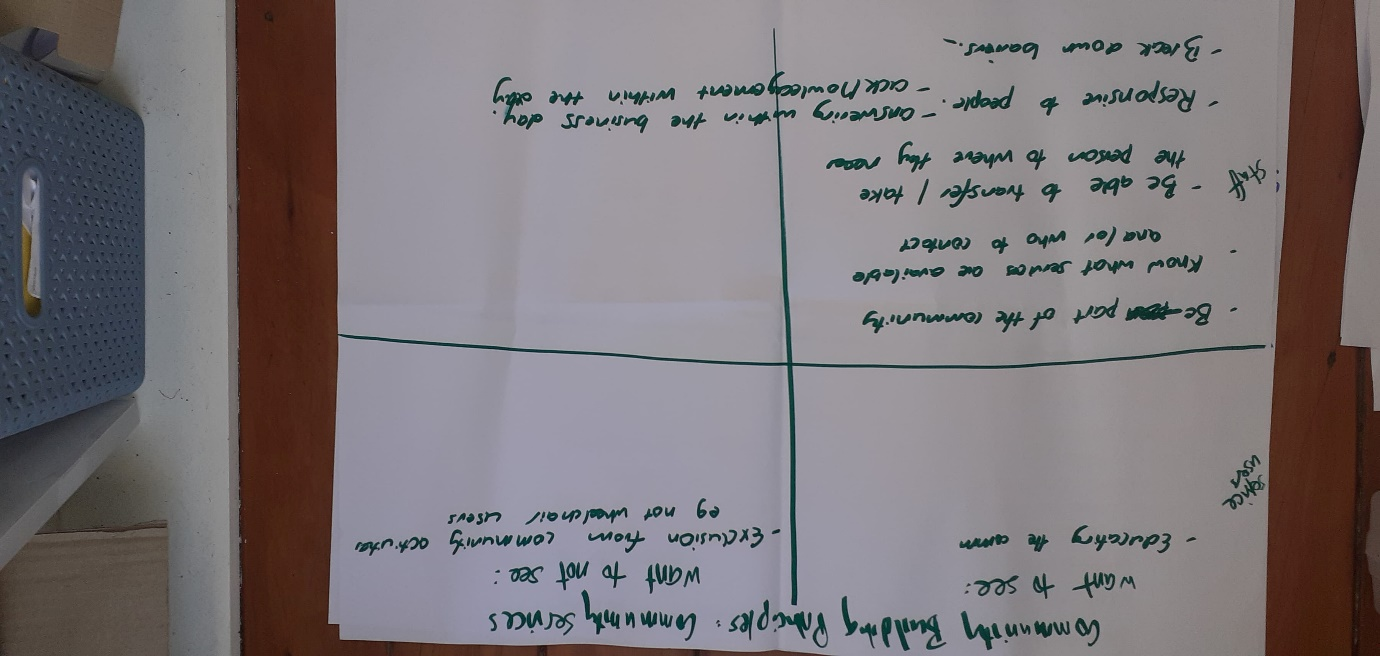 Community Building Principles: Community Services
want to see:
want to not see:
- Educating the comm
- Exclusion from community activites
eg not wheelchair users
Service
user
- Be part of the community
- Know what services are available
and/or who to contact
Staff
- Be able to transfer / take
the person to where they need
- Responsive to people. - answering within the business day.
- acknowledgement within the day
- Break down barriers.